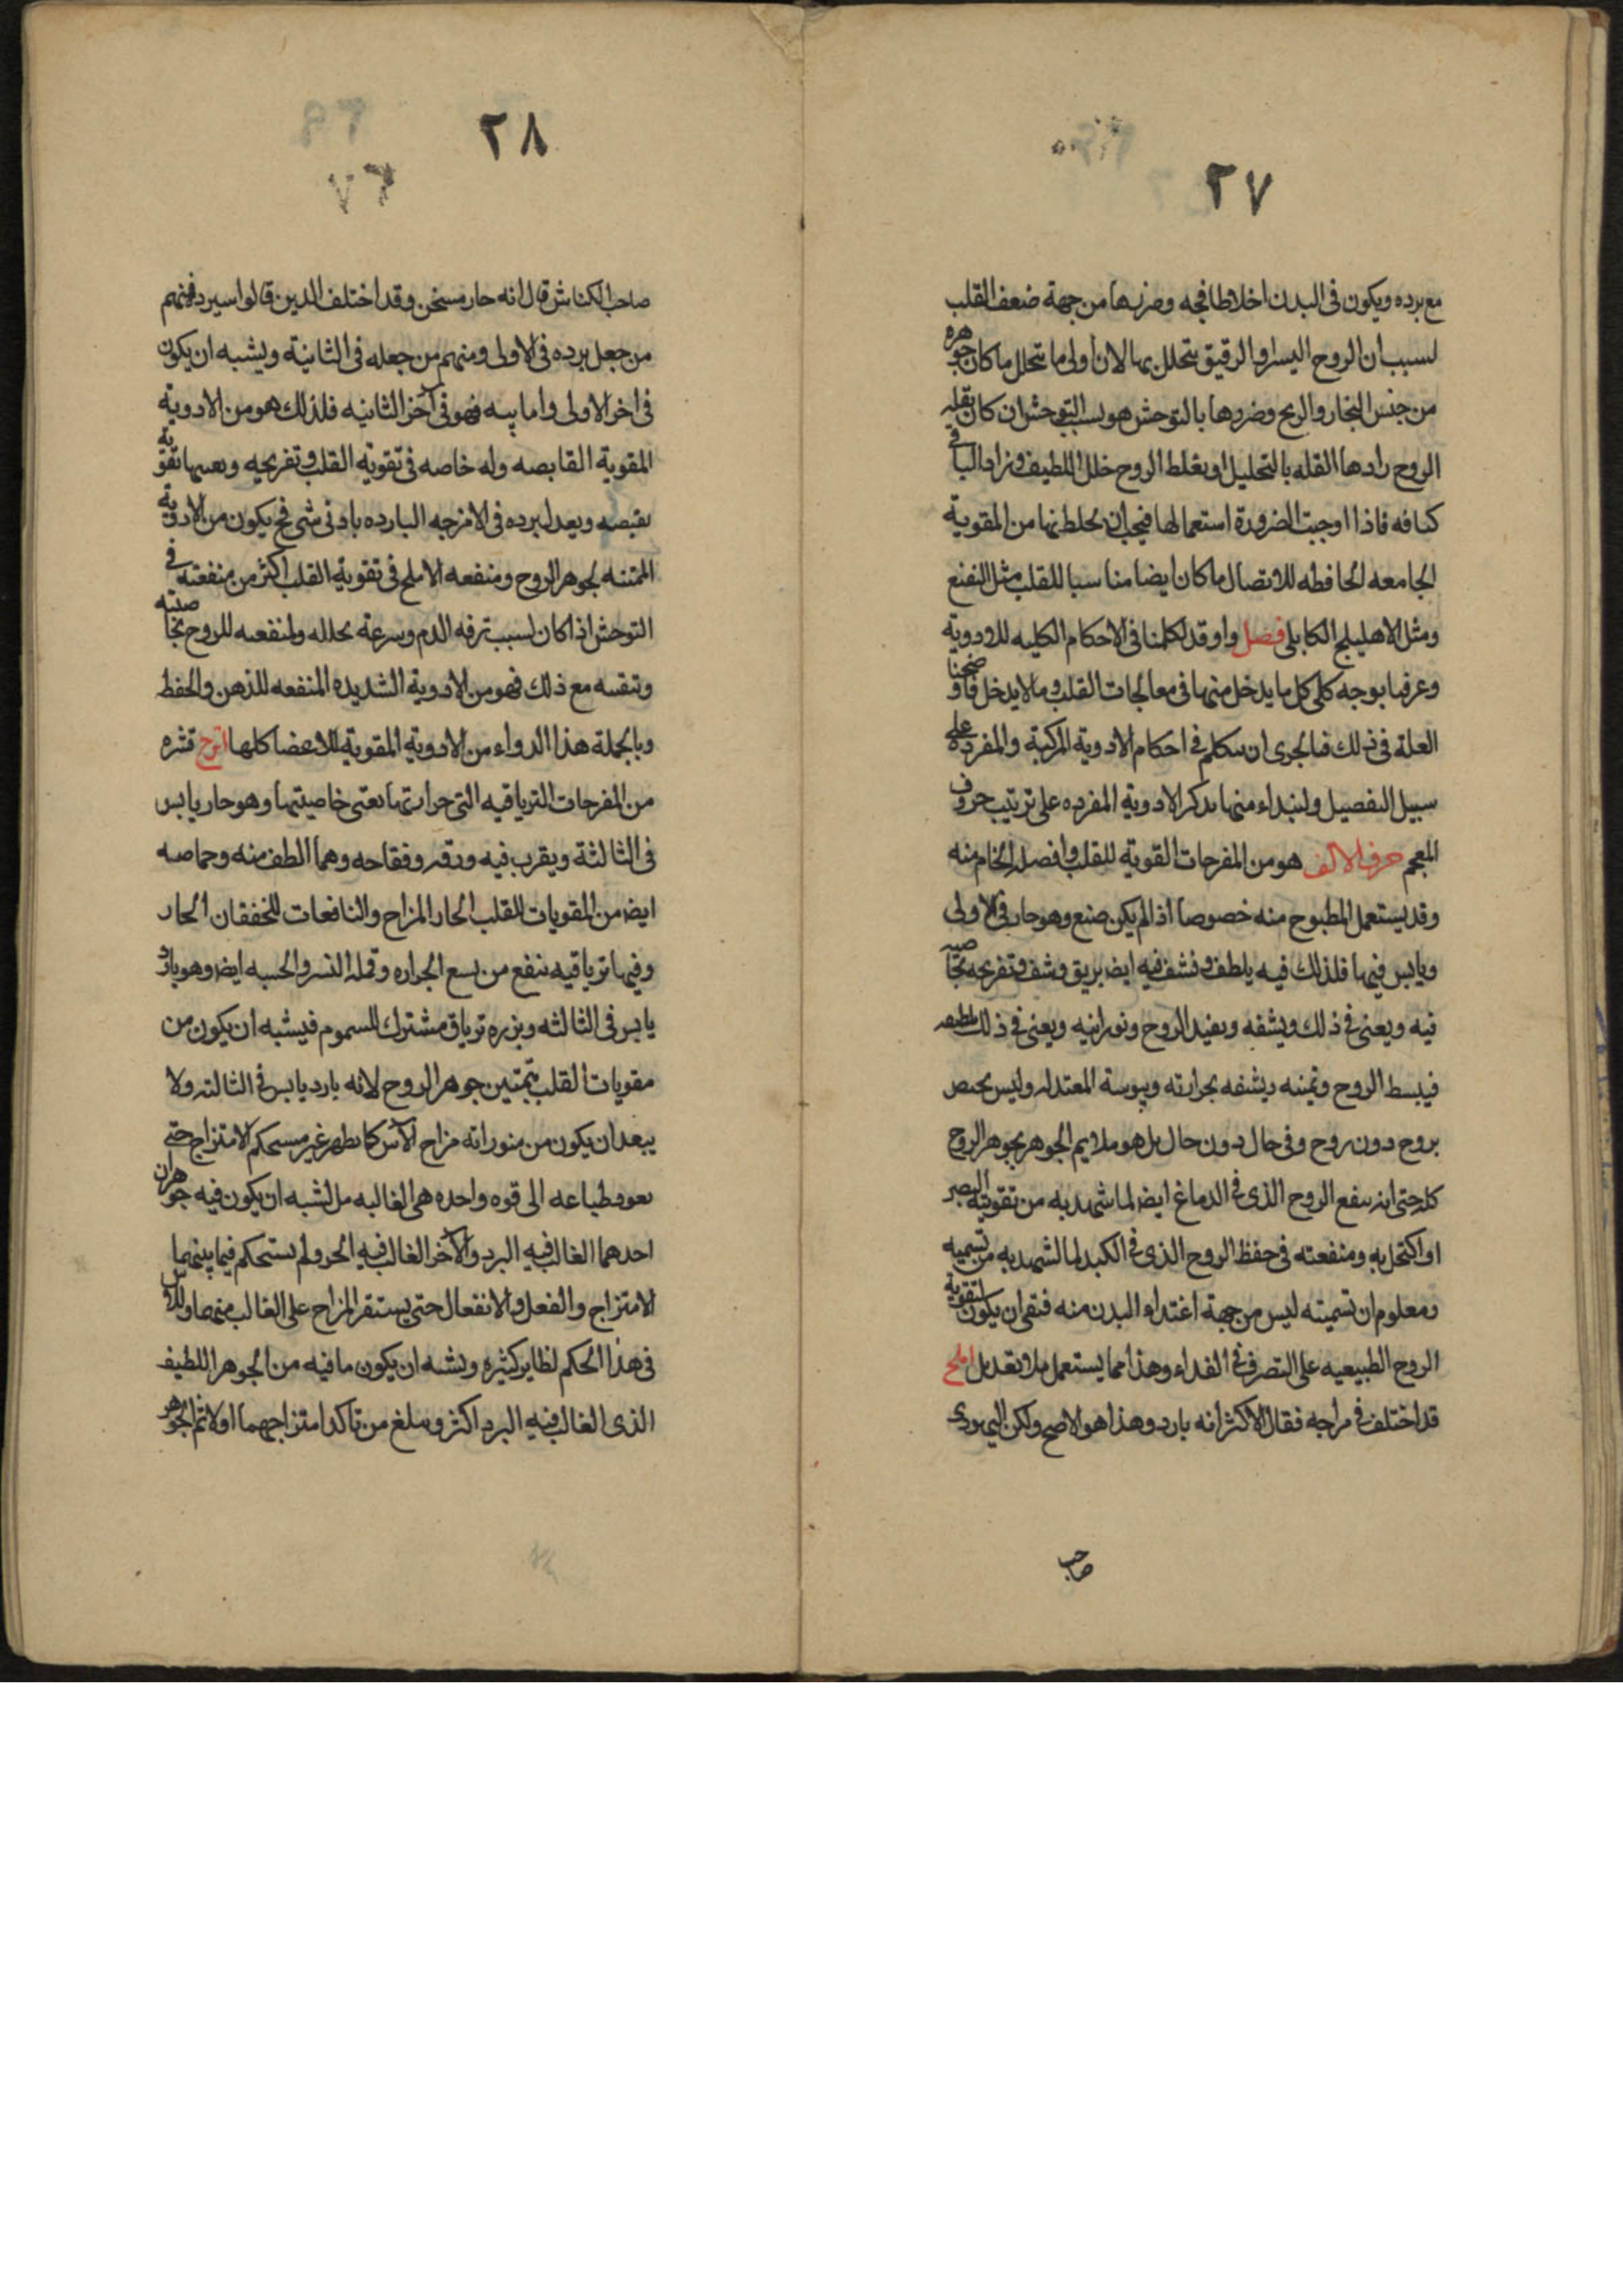 ٢٧
مع برده ويكون فى البدن اخلاطا فجه وضررها من جهة ضعف القلب
لسبب ان الروح اليسر او الرقيق يتحلل بها لان اولى ما يتحلل ما كان جوهره
من جنس البخار والريح وضررها بالتوحش هو بسبب التوحش ان كان بقله
الروح زادها القله بالتحليل او بغلط الروح خلل اللطيف وزاد الباقى
كثافه فاذا اوجبت الضرورة استعمالها فيجب ان يخلط بها من المقوية
الجامعه الحافظه للاتصال ما كان ايضا مناسبا للقلب مثل
ومثل الاهليلج الكابلى فصل واو قد تكلمنا فى الاحكام الكليه للادوية
وعرفنا بوجه كلى كل ما يدخل منها فى معالجات القلب وما لا يدخل فاوضحنا
العلة فى ذلك فبالجرى ان نتكلم فى احكام الادوية المركبة والمفرده على
سبيل التفصيل ولنبداء منها بذكر الادوية المفرده على ترتيب حروف
المعجم حرف الالف هو من المفرحات القوية للقلب وافضله الخام منه
وقد يستعمل المطبوح منه خصوصا اذ الم يكن صنع وهو حار فى الاولى
ويابس فيها فلذلك فيه يلطف و نشف فيه ايضا بريق وشف وتفريحه بخاصيه
فيه ويعنى فى ذلك ويشفه ويفيد الروح ونورانيه ويعنى فى ذلك
فيبسط الروح وتمينه ويشفه بحرارته ويبوسة المعتدله وليس يختص
بروح دون روح وفى حال دون حال بل هو ملايم الجوهر بجوهر الروح
كله حتى انه ينفع الروح الذى فى الدماغ ايضا لما شهد به من تقويته البصر
او اكتحل به ومنفعته فى حفظ الروح الذى فى الكبد لما الشهد به من تسميه
ومعلوم ان تسميته ليس من جهة اغتداء البدن منه فبقى ان يكون لتقوية
الروح الطبيعيه على التصرف فى الغداء وهذا مما يستعمل بلا تعديل املج
قد اختلف فى مزاجه فقال الاكثر انه بارد وهذا هو الاصح ولكن اليهودى
صاحب
٢٨
صاحب الكناش قال انه حار مسخن وقد اختلف الذين قالوا بيرده فمنهم
من جعل برده فى الاولى ومنهم من جعله فى الثانية ويشبه ان يكون
فى اخر الاولى واما يبسه فهو فى آخر الثانيه فلذلك هو من الادوية
المقوية القابصه وله خاصه فى تقوية القلب وتفريحه ويعينها تقويه
بقبصه ويعدل برده فى الامزجه البارده بادنى شى فح يكون من الادوية
الممتنه لجوهر الروح ومنفعه الاملج فى تقوية القلب اكثر من منفعته فى
التوحش اذا كان لسبب ترفه الدم وسرعة تحلله ولمنفعته للروح بخاصيته
وتنقسه مع ذلك فهو من الادوية الشديده المنفعه للذهن والحفظ
وبالجملة هذا الدواء من الادوية المقوية للاعضا كلها اترج قشره
من المفرحات الترياقيه التى حرارتها تعنى خاصيتها وهو حار يابس
فى الثالثة ويقرب فيه ورقه وفقاحه وهما الطف منه وحماضه
ايضا من المقويات للقلب الحار المزاج والنافعات للخفقان الحار
وفيها ترياقيه ينفع من لسع الجراره وقمله النسر والحيه ايضا وهو بارد
يابس فى الثالثه وبزره ترياق مشترك للسموم فيشبه ان يكون من
مقويات القلب بتمتين جوهر الروح لانه بارد يابس فى الثالثه ولا
يبعد ان يكون من منوراته مزاج الآس كما يظهر غير مستحكم الامتزاج حتى
يعود طباعه الى قوه واحده هى الغالبه بل لشبه ان يكون فيه جوهران
احدهما الغالب فيه البرد والآخر الغالب فيه الحر ولم يستحكم فيما بينهما
الامتزاج والفعل والانفعال حتى يستقر المزاج على الغالب منهما وللاس
فى هذا الحكم نظاير كثيره ويشبه ان يكون ما فيه من الجوهر اللطيف
الذى الغالب فيه البرد اكثر ويبلغ من تاكد امتزاجهما اولا ثم الجوهر